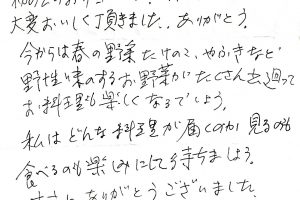 大変おいしく頂きました。ありがとう。
今からは春の野菜たけのこ、やふきなど
野性味のするお野菜がたくさん出廻って
お料理も楽しくなるでしょう。
私はどんな料理が届くのか見るのも
食べるのも楽しみにして待ちましょう。
ありがとうございました。